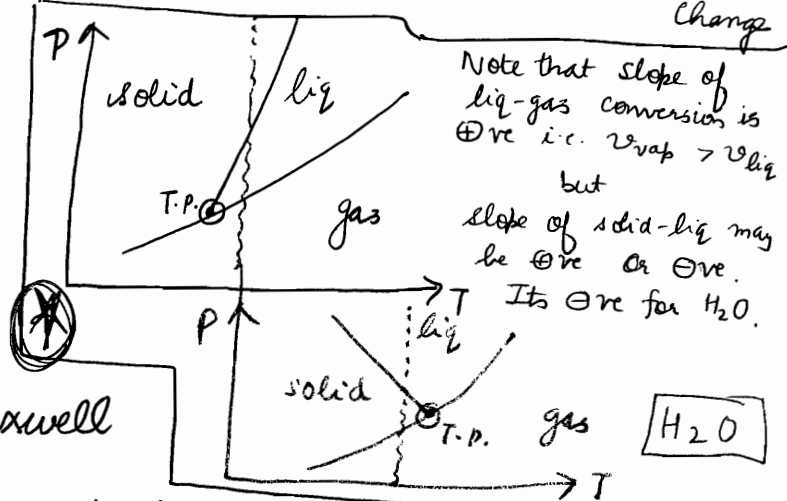 Change
P
solid
liq
T.P.
gas
T
Note that slope of
liq-gas conversion is
⊕ve i.e. Vvap > Vliq
but
slope of solid-liq may
be ⊕ve or ⊖ve.
Its ⊖ve for H₂O.
P
liq
solid
T.P.
gas
T
H₂O
xwell